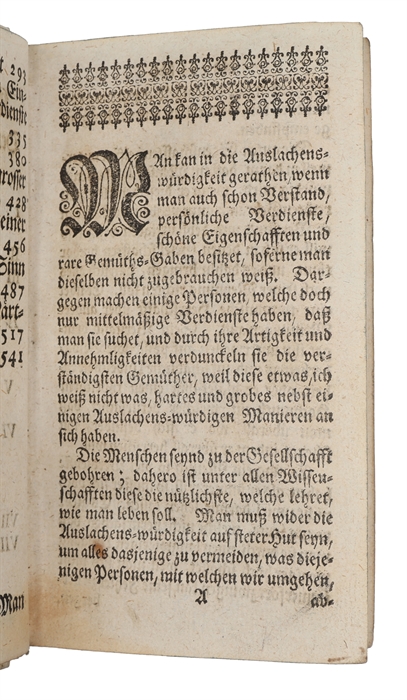 t 293
Ein-
dienste
335
380
rosser
428
einer
456
Sinn
487
Märt-
517
541
Man
MAn kan in die Auslachens-
würdigkeit gerathen, wenn
man auch schon Verstand,
persönliche Verdienste,
schöne Eigenschafften und
rare Gemüths-Gaben besitzet, soferne man
dieselben nicht zugebrauchen weiß. Dar-
gegen machen einige Personen, welche doch
nur mittelmäßige Verdienste haben, daß
man sie suchet, und durch ihre Artigkeit und
Annehmligkeiten verdunckeln sie die ver-
ständigsten Gemüther, weil diese etwas, ich
weiß nicht was, hartes und grobes nebst ei-
nigen Auslachens-würdigen Manieren an
sich haben.
Die Menschen seynd zu der Gesellschafft
gebohren; dahero ist unter allen Wissen-
schafften diese die nützlichste, welche lehret,
wie man leben soll. Man muß wider die
Auslachens-würdigkeit auf steter Hut seyn,
um alles dasjenige zu vermeiden, was dieje-
nigen Personen, mit welchen wir umgehen,
A
ab-